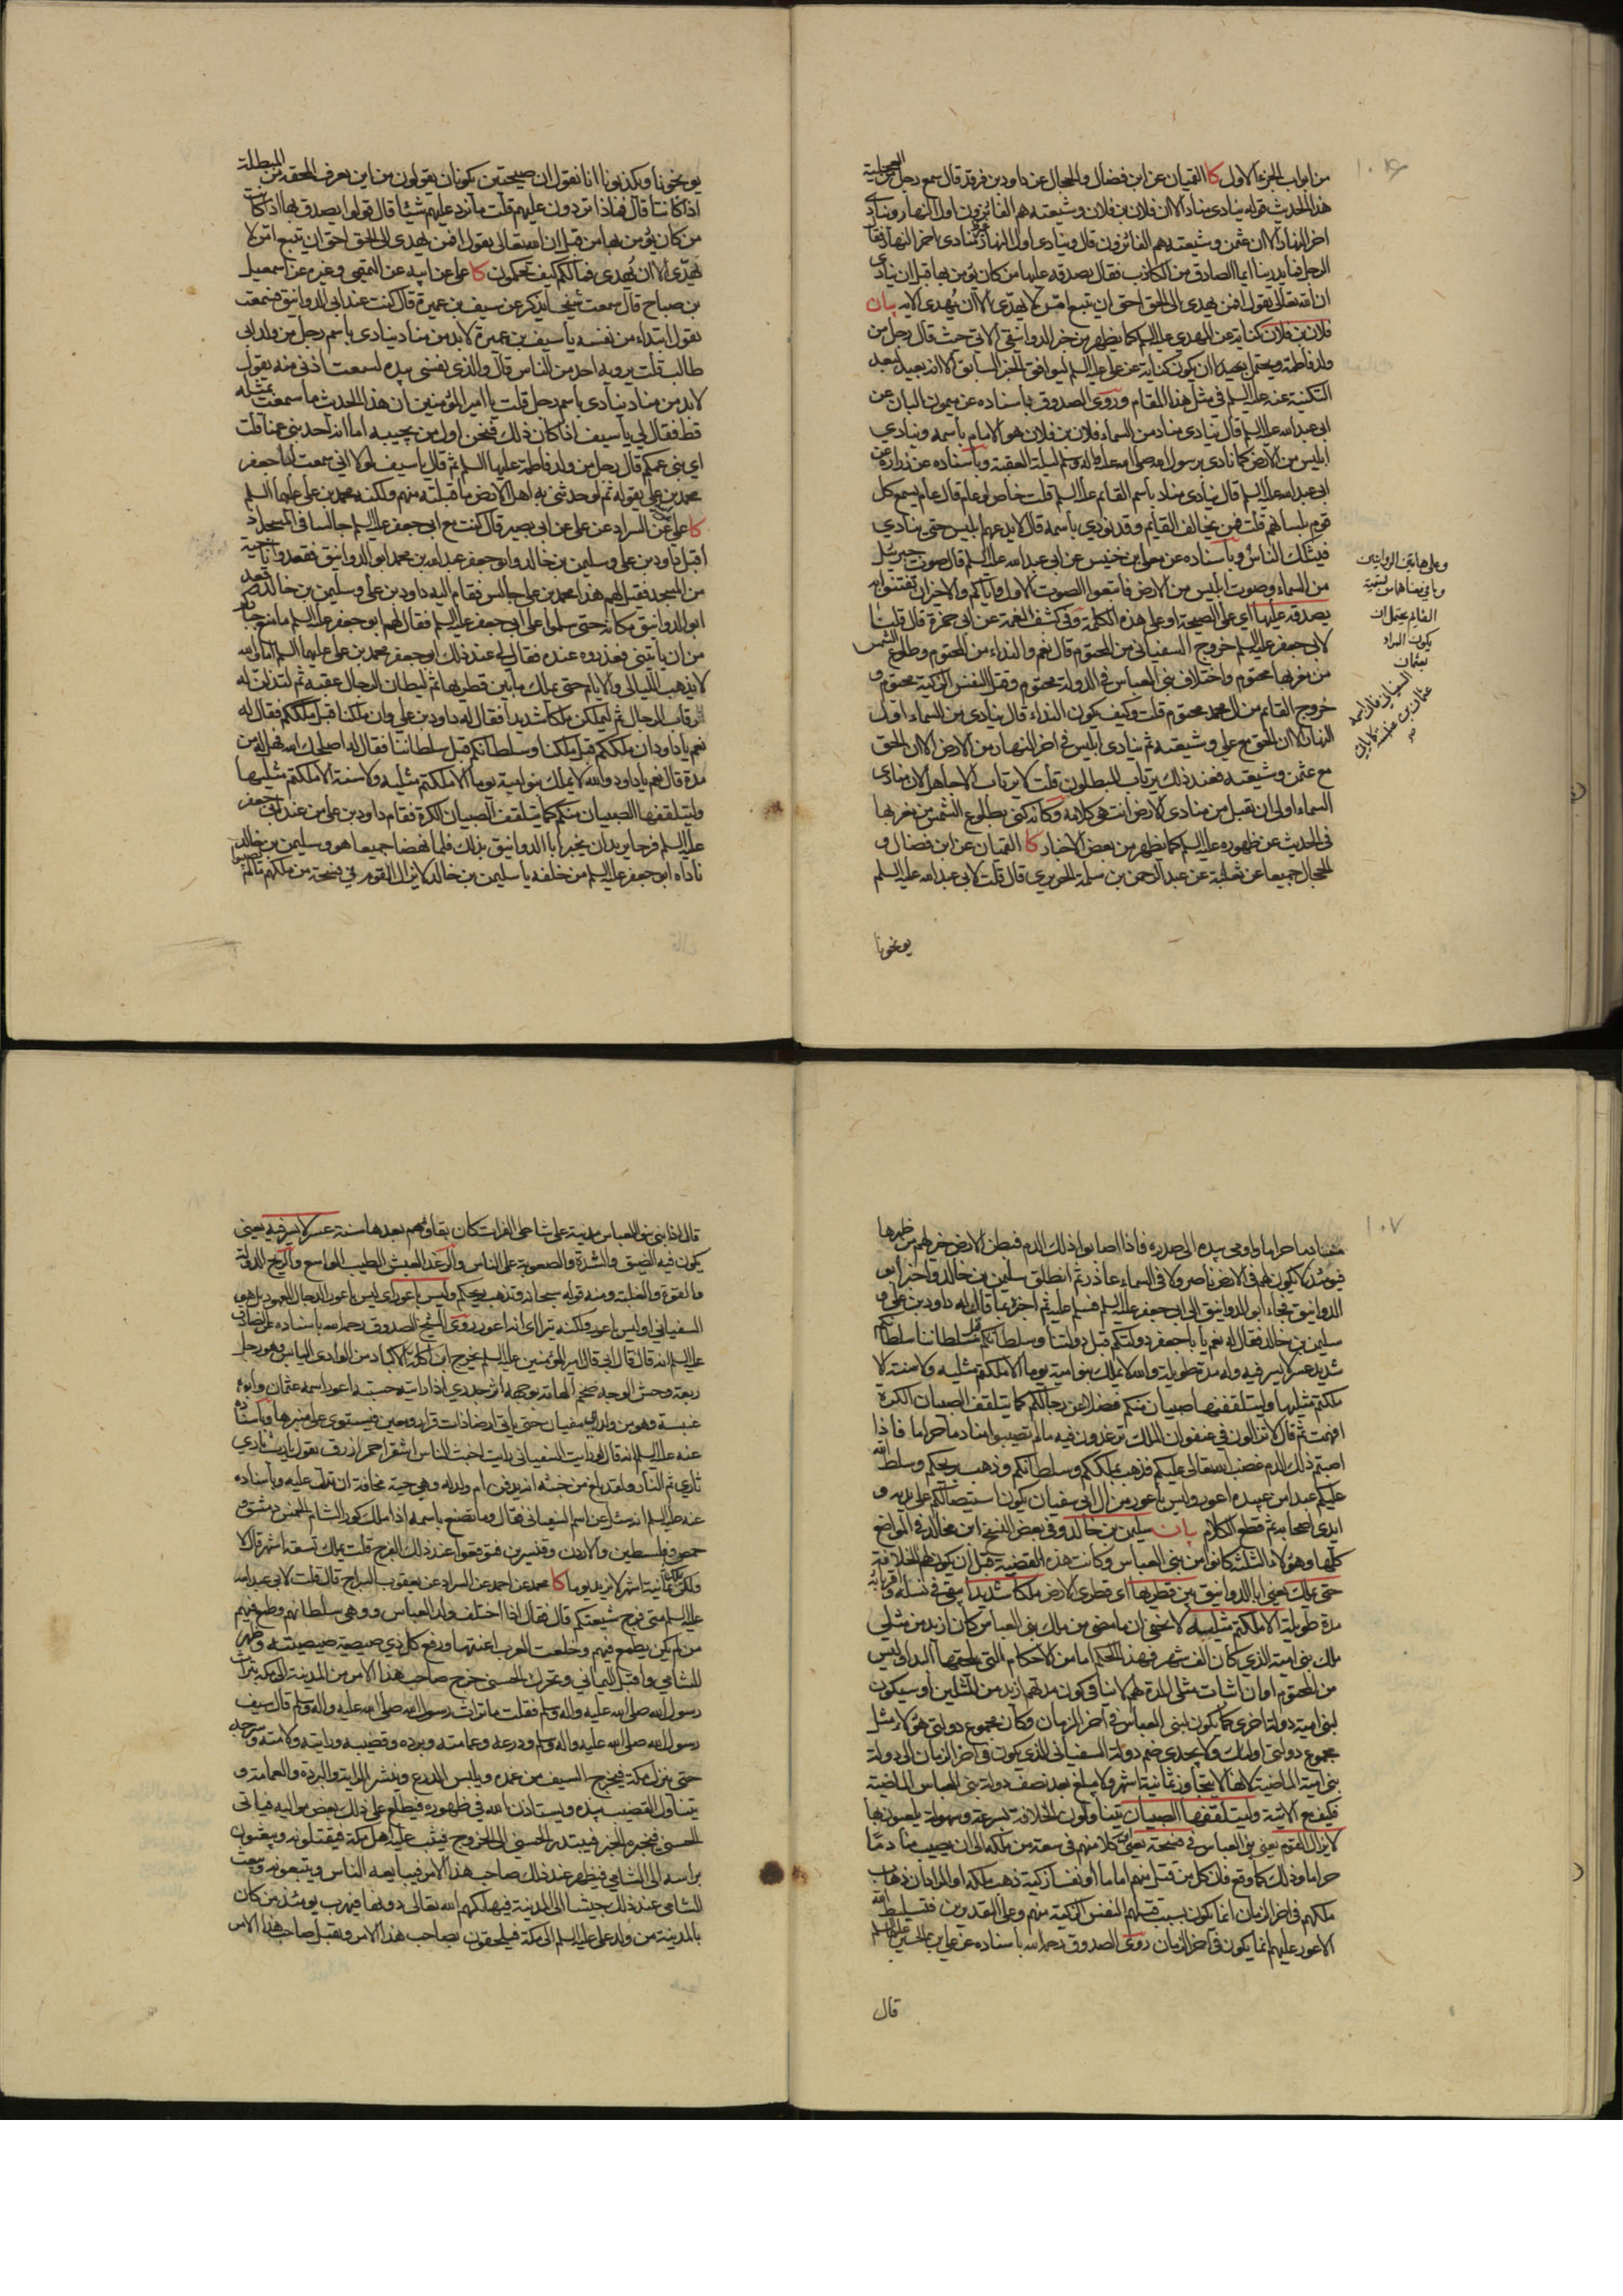 من ابواب الجزء الاول كا القميان عن ابن فضال والحجال عن داود بن فرقد قال سمع رجل من العجلية
هذا الحديث قوله ينادى مناد الا ان فلان بن فلان وشيعته هم الفائزون اول النهار وينادى
اخر النهار الا ان عثمن وشيعته هم الفائزون قال وينادى اول النهار منادى اخر النهار فقال
الرجل فما يدرينا ايما الصادق من الكاذب فقال يصدقه عليها من كان يؤمن بها قبل ان ينادى
ان الله تعالى يقول افمن يهدى الى الحق احق ان يتبع امن لا يهدّى الا ان يُهدى الايه بيان
فلان بن فلان كناية عن المهدي عليه السلم كما يظهر من خبر الدوانيقي الاتي حيث قال رجل من
ولد فاطمة ويحتمل بعيدا ان يكون كناية عن علي عليه السلم ليوافق الخبر السابق الا انه بعيد لبعد
التكنية عنه عليه السلم في مثل هذا المقام وروى الصدوق باسناده عن ميمون البان عن
ابى عبد الله عليه السلم قال ينادى مناد من السماء فلان بن فلان هو الامام باسمه وينادي
ابليس من الارض كما نادى برسول الله صلى الله عليه واله وسلم ليلة العقبة وباسناده عن زرارة عن
ابى عبد الله عليه السلم قال ينادى مناد باسم القائم عليه السلم قلت خاص او عام قال عام يسمع كل
قوم بلسانهم قلت فمن يخالف القايم وقد نودي باسمه قال لا يدعهم ابليس حتى ينادي
فيشكك الناس وباسناده عن معلى بن خنيس عن ابى عبد الله عليه السلم قال صوت جبرئيل
من السماء وصوت ابليس من الارض فاتبعوا الصوت الاول واياكم والاخير ان تفتنوا به
يصدقه عليها اى على الصيحة او على هذه الكلمة وفى كشف الغمة عن ابى حمزة قال قلت
لابى جعفر عليه السلم خروج السفيانى من المحتوم قال نعم والنداء من المحتوم وطلوع الشمس
من مغربها محتوم واختلاف بنى العباس فى الدولة محتوم وقتل النفس الزكية محتوم و
خروج القائم من ال محمد محتوم قلت وكيف يكون النداء قال ينادى من السماء اول
النهار الا ان الحق مع علي وشيعته ثم ينادى ابليس فى اخر النهار من الارض الا ان الحق
مع عثمن وشيعته فعند ذلك يرتاب المبطلون قلت لا يرتاب الا جاهل لان منادى
السماء اولى ان يقبل من منادى الارض انتهى كلامه وكانه كنى بطلوع الشمس من مغربها
فى الحديث عن ظهوره عليه السلم كما يظهر من بعض الاخبار كا القميان عن ابن فضال و
الحجال جميعا عن ثعلبة عن عبد الرحمن بن مسلمة الجريري قال قلت لابى عبد الله عليه السلم
يوبخونا
وعلى هاتين الروايتين
القائم يحتمل ان
يكون المراد
بعثمان
السفيانى فان اسمه
عثمان بن عنبسة
يوبخونا ويكذبونا انا نقول ان صيحتين تكونان يقولون من اين تعرف المحقة من المبطلة
اذا كانتا قال فماذا تردون عليهم قلت ما نرد عليهم شيئا قال قولوا يصدق بها اذا كانت
من كان يؤمن بها من قبل ان الله تعالى يقول افمن يهدى الى الحق احق ان يتبع امن لا
يهدّى الا ان يُهدى فما لكم كيف تحكمون كا على عن ابيه عن التميمى وغيره عن اسمعيل
بن صباح قال سمعت شيخا يذكر عن سيف بن عميرة قال كنت عند ابى الدوانيق فسمعته
يقول ابتداء من نفسه يا سيف بن عميرة لا بد من مناد ينادى باسم رجل من ولد ابى
طالب قلت يرويه احد من الناس قال والذى نفسي بيده لسمعت اذنى منه يقول
لا بد من مناد ينادى باسم رجل قلت يا امير المؤمنين ان هذا الحديث ما سمعت بمثله
قط فقال لى يا سيف اذا كان ذلك فنحن اول من يجيبه اما انه احد بنى عمنا قلت
اى بنى عمكم قال رجل من ولد فاطمة عليها السلم ثم قال يا سيف لولا انى سمعت ابا جعفر
محمد بن علي يقوله ثم لو حدثنى به اهل الارض ما قبلته منهم ولكنه محمد بن على عليهما السلم
كا على عن السراد عن على عن ابى بصير قال كنت مع ابى جعفر عليه السلم جالسا فى المسجد اذ
اقبل داود بن على وسليمن بن خالد وابو جعفر عبد الله بن محمد ابو الدوانيق فقعدوا ناحية
من المسجد فقيل لهم هذا محمد بن على جالس فقام اليه داود بن على وسليمن بن خالد وقعد
ابو الدوانيق مكانه حتى سلموا على ابى جعفر عليه السلم فقال لهم ابو جعفر عليه السلم ما منع جباركم
من ان ياتينى فعذروه عنده فقال عند ذلك ابو جعفر محمد بن على عليهما السلم اما والله
لا يذهب الليالى والايام حتى يملك ما بين قطريها ثم ليطان الرجال عقبه ثم لتذلن له
رقاب الرجال ثم ليملكن ملكا شديدا فقال له داود بن على وان ملكنا قبل ملككم فقال له
نعم يا داود ان ملككم قبل ملكنا وسلطانكم قبل سلطاننا فقال له اصلحك الله فهل له من
مدة قال نعم يا داود والله لا يملك بنو امية يوما الا ملكتم مثليه ولا سنة الا ملكتم مثليها
وليتلقفها الصبيان منكم كما يتلقف الصبيان الكرة فقام داود بن على من عند ابى جعفر
عليه السلم فرحا يريد ان يخبر ابا الدوانيق بذلك فلما نهضا جميعا هو وسليمن بن خالد
ناداه ابو جعفر عليه السلم من خلفه يا سليمن بن خالد لا يزال القوم في فسحة من ملكهم ما لم يصيبوا
١٠٧
منا دما حراما واومى بيده الى صدره فاذا اصابوا ذلك الدم فبطن الارض خير لهم من ظهرها
فيومئذ لا يكون لهم فى الارض ناصر ولا فى السماء عاذر ثم انطلق سليمن بن خالد واخبر ابو
الدوانيق فجاء ابو الدوانيق الى ابى جعفر عليه السلم فسلم عليه ثم اخبره بما قال له داود بن على و
سليمن بن خالد فقال له نعم يا با جعفر دولتكم قبل دولتنا وسلطانكم قبل سلطاننا سلطانكم
شديد عسر لا يسر فيه وله مدة طويلة والله لا يملك بنو امية يوما الا ملكتم مثليه ولا سنة الا
ملكتم مثليها وليتلقفنها صبيان منكم فضلا عن رجالكم كما يتلقف الصبيان الكرة
افهمت ثم قال لا تزالون فى عنفوان الملك ترغدون فيه ما لم تصيبوا منا دما حراما فاذا
اصبتم ذلك الدم غضب الله تعالى عليكم فذهب بملككم وسلطانكم وذهب بريحكم وسلط الله
عليكم عبدا من عبيده اعور وليس باعور من ال ابى سفيان يكون استيصالكم على يديه و
ايدى اصحابه ثم قطع الكلام بيان سليمن بن خالد وفى بعض النسخ ابن مجالد فى المواضع
كلها وهؤلاء الثلثة كانوا من بنى العباس وكانت هذه القضية قبل ان يكون لهم الخلافة
حتى يملك يعنى ابا الدوانيق بين قطريها اى قطرى الارض ملكا شديدا يبقى فى نسله واقربائه
مدة طويلة الا ملكتم مثليه لا يخفى ان ما مضى من ملك بنى العباس كان ازيد من مثلى
ملك بنى امية الذي كان الف شهر فهذا الحكم اما من الاحكام التى يلحقها البدا وليس
من المحتوم او ان اثبات مثلى المدة لهم لا ينافى كون مدتهم ازيد من المثلين او سيكون
لبنى امية دولة اخرى كما يكون لبنى العباس فى اخر الزمان وكان مجموع دولتى هؤلاء مثل
مجموع دولتى اولئك ولا يجدى ضم دولة السفيانى الذى يكون فى اخر الزمان الى دولة
بنى امية الماضية لانها لا يتجاوز ثمانية اشهر ولا يبلغ بعد نصف دولة بنى العباس الماضية
فكيف مع الاتية وليتلقفها الصبيان يتناولون الخلافة بسرعة وسهولة يلعبون بها
لا يزال القوم يعنى بنى العباس فى فسحة يعنى ان كلا منهم فى سعة من ملكه الى ان يصيب منا دمًا
حراما وذلك كما وقع فان كل من قتل منهم اماما او نفسا زكية ذهب ملكه او المراد ان ذهاب
ملكهم فى اخر الزمان انما يكون بسبب قتلهم النفس الزكية منهم وعلى التقديرين فتسليط الله
الاعور عليهم انما يكون فى اخر الزمان روى الصدوق رحمه الله باسناده عن على بن الحسين عليهما السلم
قال
قال اذا بنى بنو العباس مدينة على شاطى الفرات كان بقاؤهم بعدها سنة عسر لا يسر فيه يعنى
يكون فيه الضيق والشدة والصعوبة على الناس والرغد العيش الطيب الواسع والريح الدولة
والقوة والغلبة ومنه قوله سبحانه وتذهب ريحكم وليس باعور اى ليس باعور الدجال المعهود بل هو
السفيانى او ليس باعور ولكنه يترااى انه اعور روى الشيخ الصدوق رحمه الله باسناده عن الصادق
عليه السلم انه قال قال ابى قال امير المؤمنين عليه السلم يخرج ابن اكلة الاكباد من الوادى اليابس وهو رجل
ربعة وحش الوجه ضخم الهامة بوجهه اثر جدري اذا رايته حسبته اعور اسمه عثمان وابوه
عنبسة وهو من ولد ابى سفيان حتى ياتى ارضا ذات قرار ومعين فيستوى على منبرها وباسناده
عنه عليه السلم انه قال لو رايت السفيانى رايت اخبث الناس اشقر احمر ازرق يقول يا رب ثاري
ثاري ثم النار ولقد بلغ من خبثه انه يدفن ام ولد له وهى حية مخافة ان تدل عليه وباسناده
عنه عليه السلم انه سئل عن اسم السفيانى فقال وما تصنع باسمه اذا ملك كور الشام الخمس دمشق و
حمص وفلسطين والاردن وقنسرين فتوقعوا عند ذلك الفرج قلت يملك تسعة اشهر قال لا
ولكن يملك ثمانية اشهر لا يزيد يوما كا محمد عن احمد عن السراد عن يعقوب السراج قال قلت لابى عبد الله
عليه السلم متى فرج شيعتكم قال فقال اذا اختلف ولد العباس ووهى سلطانهم وطمع فيهم
من لم يكن يطمع فيهم وخلعت العرب اعنتها ورفع كل ذي صيصية صيصيته وظهر
الشامي واقبل اليمانى وتحرك الحسنى خرج صاحب هذا الامر من المدينة الى مكة بتراث
رسول الله صلى الله عليه واله وسلم فقلت ما تراث رسول الله صلى الله عليه واله وسلم قال سيف
رسول الله صلى الله عليه واله وسلم ودرعه وعمامته وبرده وقضيبه ورايته ولامته وسرجه
حتى ينزل مكة فيخرج السيف من غمده ويلبس الدرع وينشر الراية والبردة والعمامة و
يتناول القضيب بيده ويستاذن الله فى ظهوره فيطلع على ذلك بعض مواليه فياتى
الحسنى فيخبره الخبر فيبتدر الحسنى الى الخروج فيثب عليه اهل مكة فيقتلونه ويبعثون
براسه الى الشامى فيظهر عند ذلك صاحب هذا الامر فيبايعه الناس ويتبعونه ويبعث
الشامى عند ذلك جيشا الى المدينة فيهلكهم الله تعالى دونها فيهرب يومئذ من كان
بالمدينة من ولد على عليه السلم الى مكة فيلحقون بصاحب هذا الامر ويقبل صاحب هذا الامر